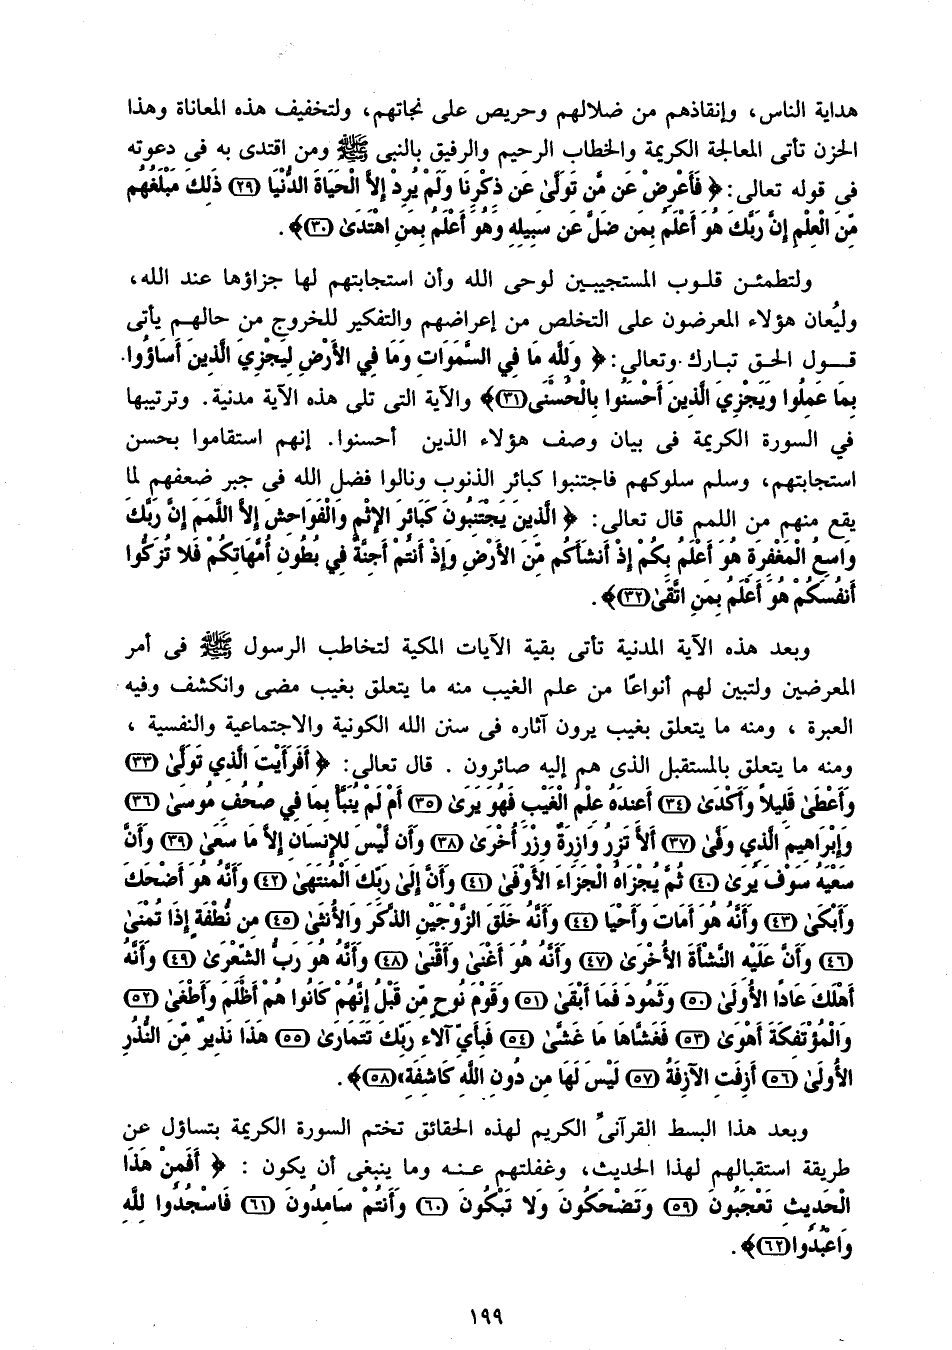 هداية الناس، وإنقاذهم من ضلالهم وحريص على نجاتهم، ولتخفيف هذه المعاناة وهذا
الحزن تأتى المعالجة الكريمة والخطاب الرحيم والرفيق بالنبى ﷺ ومن اقتدى به فى دعوته
فى قوله تعالى: ﴿ فَأَعْرِضْ عَن مَّن تَوَلَّىٰ عَن ذِكْرِنَا وَلَمْ يُرِدْ إِلاَّ الْحَيَاةَ الدُّنْيَا (٢٩) ذَلِكَ مَبْلَغُهُم
مِّنَ الْعِلْمِ إِنَّ رَبَّكَ هُوَ أَعْلَمُ بِمَن ضَلَّ عَن سَبِيلِهِ وَهُوَ أَعْلَمُ بِمَنِ اهْتَدَىٰ (٣٠)﴾ .
ولتطمئن قلوب المستجيبين لوحى الله وأن استجابتهم لها جزاؤها عند الله،
وليُعان هؤلاء المعرضون على التخلص من إعراضهم والتفكير للخروج من حالهم يأتى
قول الحق تبارك وتعالى: ﴿ وَلِلَّهِ مَا فِي السَّمَوَاتِ وَمَا فِي الأَرْضِ لِيَجْزِيَ الَّذِينَ أَسَاؤُوا
بِمَا عَمِلُوا وَيَجْزِيَ الَّذِينَ أَحْسَنُوا بِالْحُسْنَى (٣١)﴾ والآية التى تلى هذه الآية مدنية. وترتيبها
في السورة الكريمة فى بيان وصف هؤلاء الذين أحسنوا. إنهم استقاموا بحسن
استجابتهم، وسلم سلوكهم فاجتنبوا كبائر الذنوب ونالوا فضل الله فى جبر ضعفهم لما
يقع منهم من اللمم قال تعالى: ﴿ الَّذِينَ يَجْتَنِبُونَ كَبَائِرَ الإِثْمِ وَالْفَوَاحِشَ إِلاَّ اللَّمَمَ إِنَّ رَبَّكَ
وَاسِعُ الْمَغْفِرَةِ هُوَ أَعْلَمُ بِكُمْ إِذْ أَنشَأَكُم مِّنَ الأَرْضِ وَإِذْ أَنتُمْ أَجِنَّةٌ فِي بُطُونِ أُمَّهَاتِكُمْ فَلا تُزَكُّوا
أَنفُسَكُمْ هُوَ أَعْلَمُ بِمَنِ اتَّقَىٰ (٣٢)﴾ .
وبعد هذه الآية المدنية تأتى بقية الآيات المكية لتخاطب الرسول ﷺ فى أمر
المعرضين ولتبين لهم أنواعًا من علم الغيب منه ما يتعلق بغيب مضى وانكشف وفيه
العبرة ، ومنه ما يتعلق بغيب يرون آثاره فى سنن الله الكونية والاجتماعية والنفسية ،
ومنه ما يتعلق بالمستقبل الذى هم إليه صائرون . قال تعالى: ﴿ أَفَرَأَيْتَ الَّذِي تَوَلَّىٰ (٣٣)
وَأَعْطَىٰ قَلِيلاً وَأَكْدَىٰ (٣٤) أَعِندَهُ عِلْمُ الْغَيْبِ فَهُوَ يَرَىٰ (٣٥) أَمْ لَمْ يُنَبَّأْ بِمَا فِي صُحُفِ مُوسَىٰ (٣٦)
وَإِبْرَاهِيمَ الَّذِي وَفَّىٰ (٣٧) أَلاَّ تَزِرُ وَازِرَةٌ وِزْرَ أُخْرَىٰ (٣٨) وَأَن لَّيْسَ لِلإِنسَانِ إِلاَّ مَا سَعَىٰ (٣٩) وَأَنَّ
سَعْيَهُ سَوْفَ يُرَىٰ (٤٠) ثُمَّ يُجْزَاهُ الْجَزَاءَ الأَوْفَىٰ (٤١) وَأَنَّ إِلَىٰ رَبِّكَ الْمُنتَهَىٰ (٤٢) وَأَنَّهُ هُوَ أَضْحَكَ
وَأَبْكَىٰ (٤٣) وَأَنَّهُ هُوَ أَمَاتَ وَأَحْيَا (٤٤) وَأَنَّهُ خَلَقَ الزَّوْجَيْنِ الذَّكَرَ وَالأُنثَىٰ (٤٥) مِن نُّطْفَةٍ إِذَا تُمْنَىٰ
(٤٦) وَأَنَّ عَلَيْهِ النَّشْأَةَ الأُخْرَىٰ (٤٧) وَأَنَّهُ هُوَ أَغْنَىٰ وَأَقْنَىٰ (٤٨) وَأَنَّهُ هُوَ رَبُّ الشِّعْرَىٰ (٤٩) وَأَنَّهُ
أَهْلَكَ عَادًا الأُولَىٰ (٥٠) وَثَمُودَ فَمَا أَبْقَىٰ (٥١) وَقَوْمَ نُوحٍ مِّن قَبْلُ إِنَّهُمْ كَانُوا هُمْ أَظْلَمَ وَأَطْغَىٰ (٥٢)
وَالْمُؤْتَفِكَةَ أَهْوَىٰ (٥٣) فَغَشَّاهَا مَا غَشَّىٰ (٥٤) فَبِأَيِّ آلاءِ رَبِّكَ تَتَمَارَىٰ (٥٥) هَذَا نَذِيرٌ مِّنَ النُّذُرِ
الأُولَىٰ (٥٦) أَزِفَتِ الآزِفَةُ (٥٧) لَيْسَ لَهَا مِن دُونِ اللَّهِ كَاشِفَةٌ (٥٨)﴾ .
وبعد هذا البسط القرآنىِّ الكريم لهذه الحقائق تختم السورة الكريمة بتساؤل عن
طريقة استقبالهم لهذا الحديث، وغفلتهم عنه وما ينبغى أن يكون : ﴿ أَفَمِنْ هَذَا
الْحَدِيثِ تَعْجَبُونَ (٥٩) وَتَضْحَكُونَ وَلا تَبْكُونَ (٦٠) وَأَنتُمْ سَامِدُونَ (٦١) فَاسْجُدُوا لِلَّهِ
وَاعْبُدُوا (٦٢)﴾ .
١٩٩